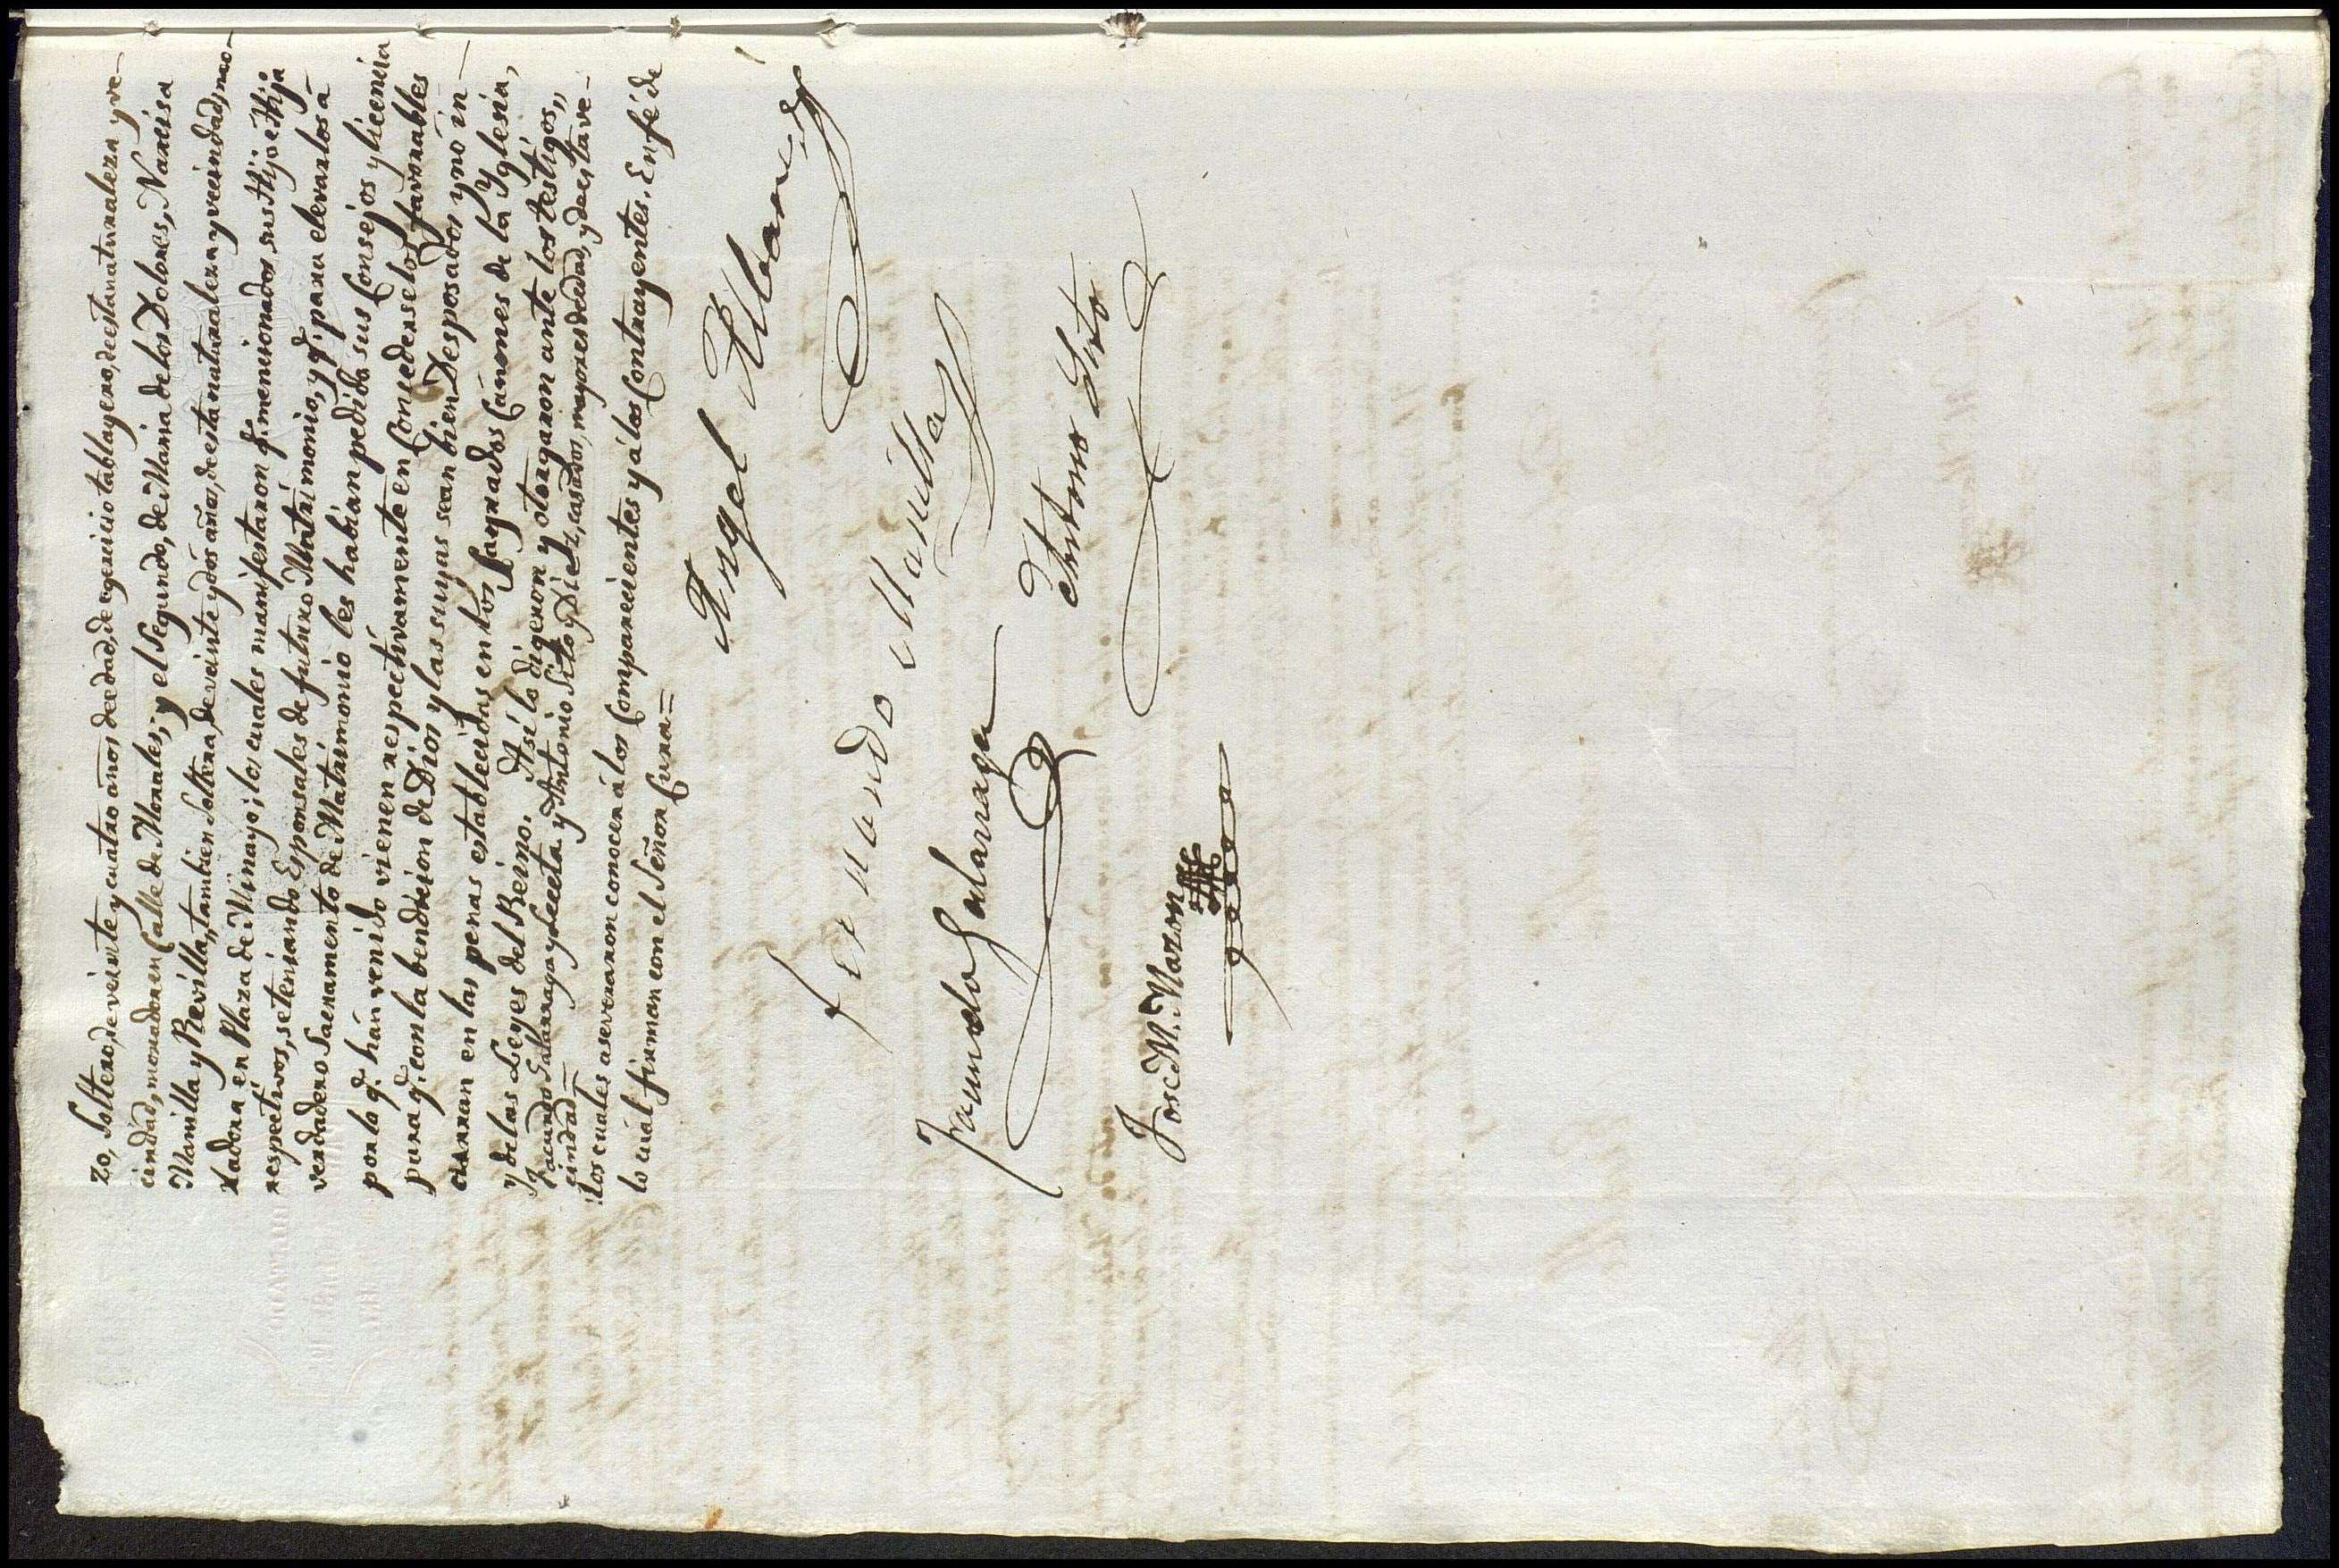 zo, Soltero, de veinte y cuatro años de edad, de egercicio tablagero, de esta naturaleza y ve-
cindad, morador en Calle de Morales; y el Segundo, de Maria de los Dolores, Narcisa
Manilla y Revilla, tambien Soltera, de veinte y dos años, de esta naturaleza y vecindad, mo-
radora en Plaza de Minayo; los cuales manifestaron q.e mencionados sus Hijo e Hija
respectivos, se teniando Esponsales de futuro Matrimonio, y q.e para elevarlos á
verdadero Sacramento de Matrimonio les habian pedido sus Consejos y licencia
por lo q.e hán venido vienen respectivamente en Concederselos favorables
para q.e con la bendicion de Dios y las suyas sean bien Desposados y no in-
curran en las penas establecidas en los Sagrados Cánones de la Yglesia,
y de las Leyes del Reino. Así lo digeron y otorgaron ante los testigos,,
Facundo Galarraga y Leceta, y Antonio Sito y Diez, casados, mayores de edad, y de esta ve-
cindad=
los cuales aseveraron conocer á los Comparecientes y á los Contrayentes. En fé de
lo cuál firman con el Señor Cura=
Angel Albarez
Fernando Manilla
Facundo Galarraga
Antonio Sito
José M. Mazon